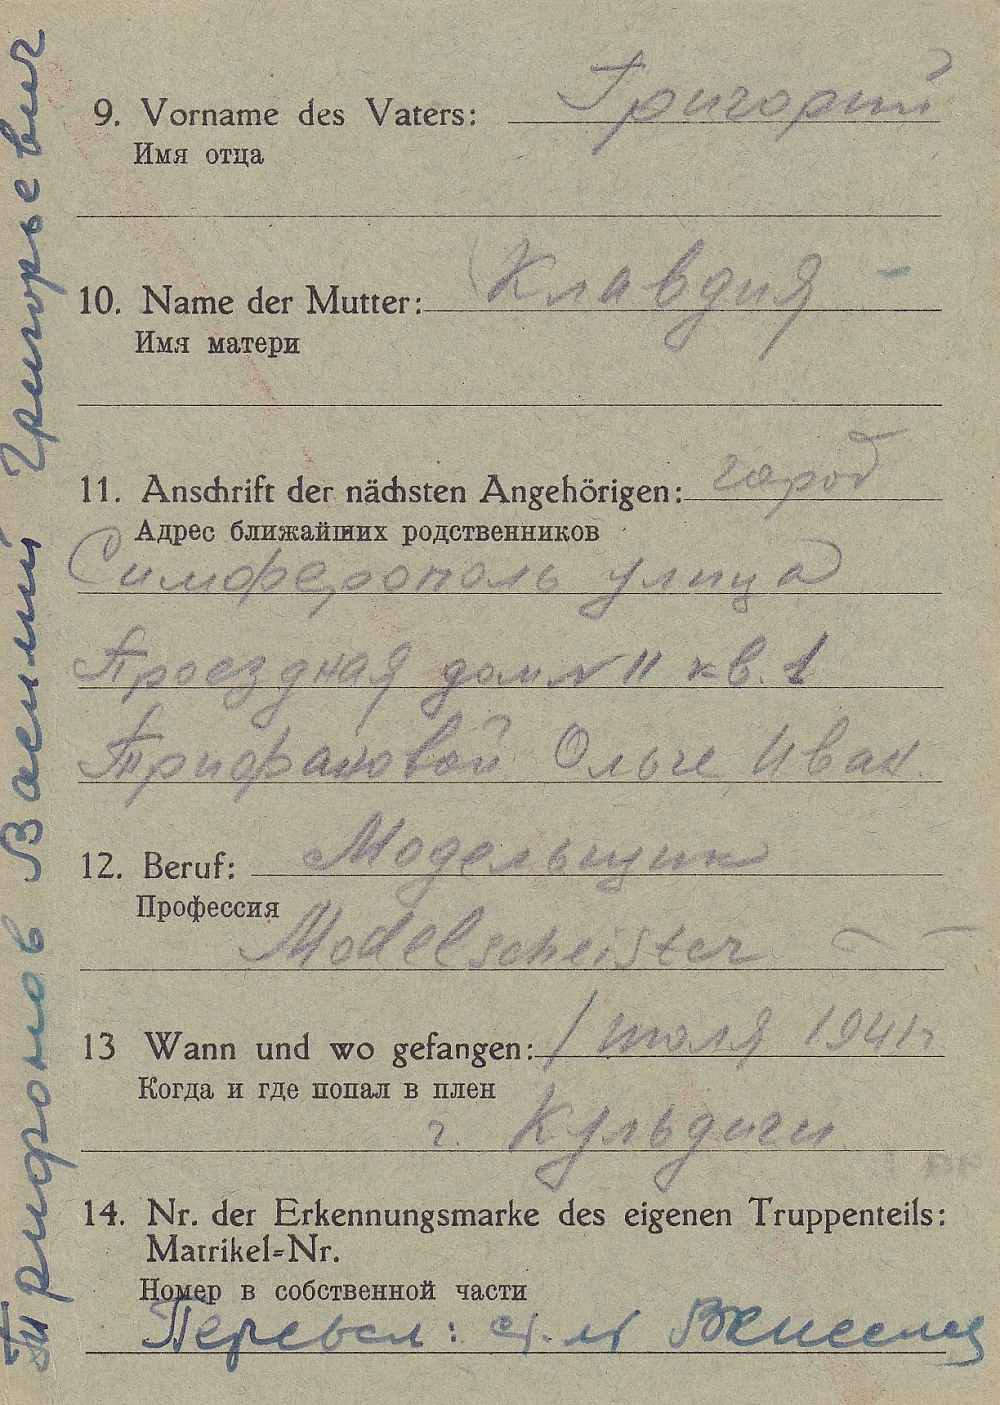 9. Vorname des Vaters: Григорий
Имя отца
10. Name der Mutter: Клавдия
Имя матери
11. Anschrift der nächsten Angehörigen: город
Адрес ближайших родственников
Симферополь улица
Проездная дом № 11 кв. 1
Трифоновой Ольге Иван.
12. Beruf: Модельщик
Профессия
Modelscheister
13 Wann und wo gefangen: 1 июля 1941 г
Когда и где попал в плен
г. Кульдиги
14. Nr. der Erkennungsmarke des eigenen Truppenteils:
Matrikel=Nr.
Номер в собственной части
Перевел: ст. л-т
Трифонов Василий Григорьевич